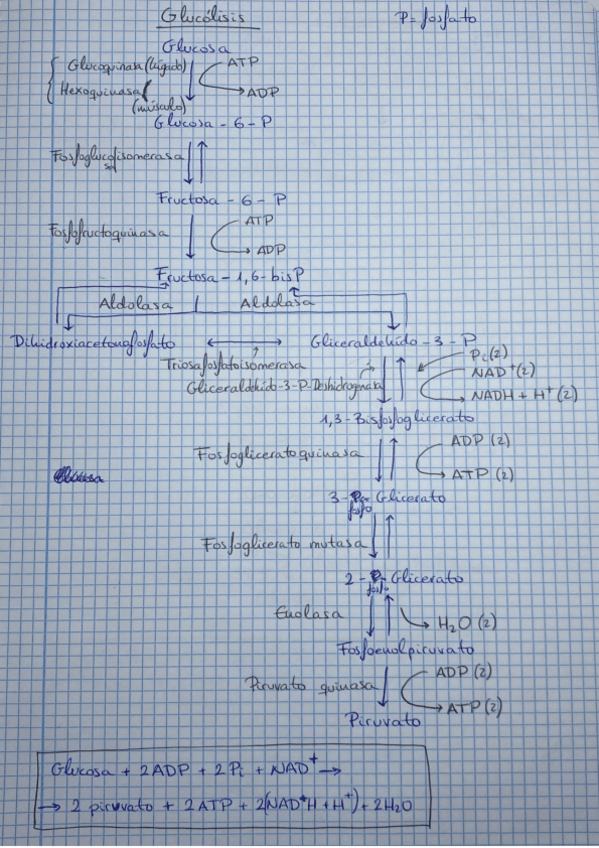 Glucólisis
P = fosfato
Glucosa
Glucoquinasa (hígado)
ATP
Hexoquinasa
ADP
(músculo)
Glucosa - 6 - P
Fosfoglucoisomerasa
Fructosa - 6 - P
Fosfofructoquinasa
ATP
ADP
Fructosa - 1,6 - bisP
Aldolasa
Aldolasa
Dihidroxiacetonafosfato
Gliceraldehido - 3 - P
Triosafosfatoisomerasa
Pi (2)
NAD+ (2)
Gliceraldehido-3-P-Deshidrogenasa
NADH + H+ (2)
1,3-Bisfosfoglicerato
Fosfoglicerato quinasa
ADP (2)
ATP (2)
3 - Glicerato
fosfo
Fosfoglicerato mutasa
2 - Glicerato
fosfo
Enolasa
H2O (2)
Fosfoenolpiruvato
ADP (2)
Piruvato quinasa
ATP (2)
Piruvato
Glucosa + 2ADP + 2Pi + NAD+ →
→ 2 piruvato + 2ATP + 2(NAD+H + H+) + 2H2O